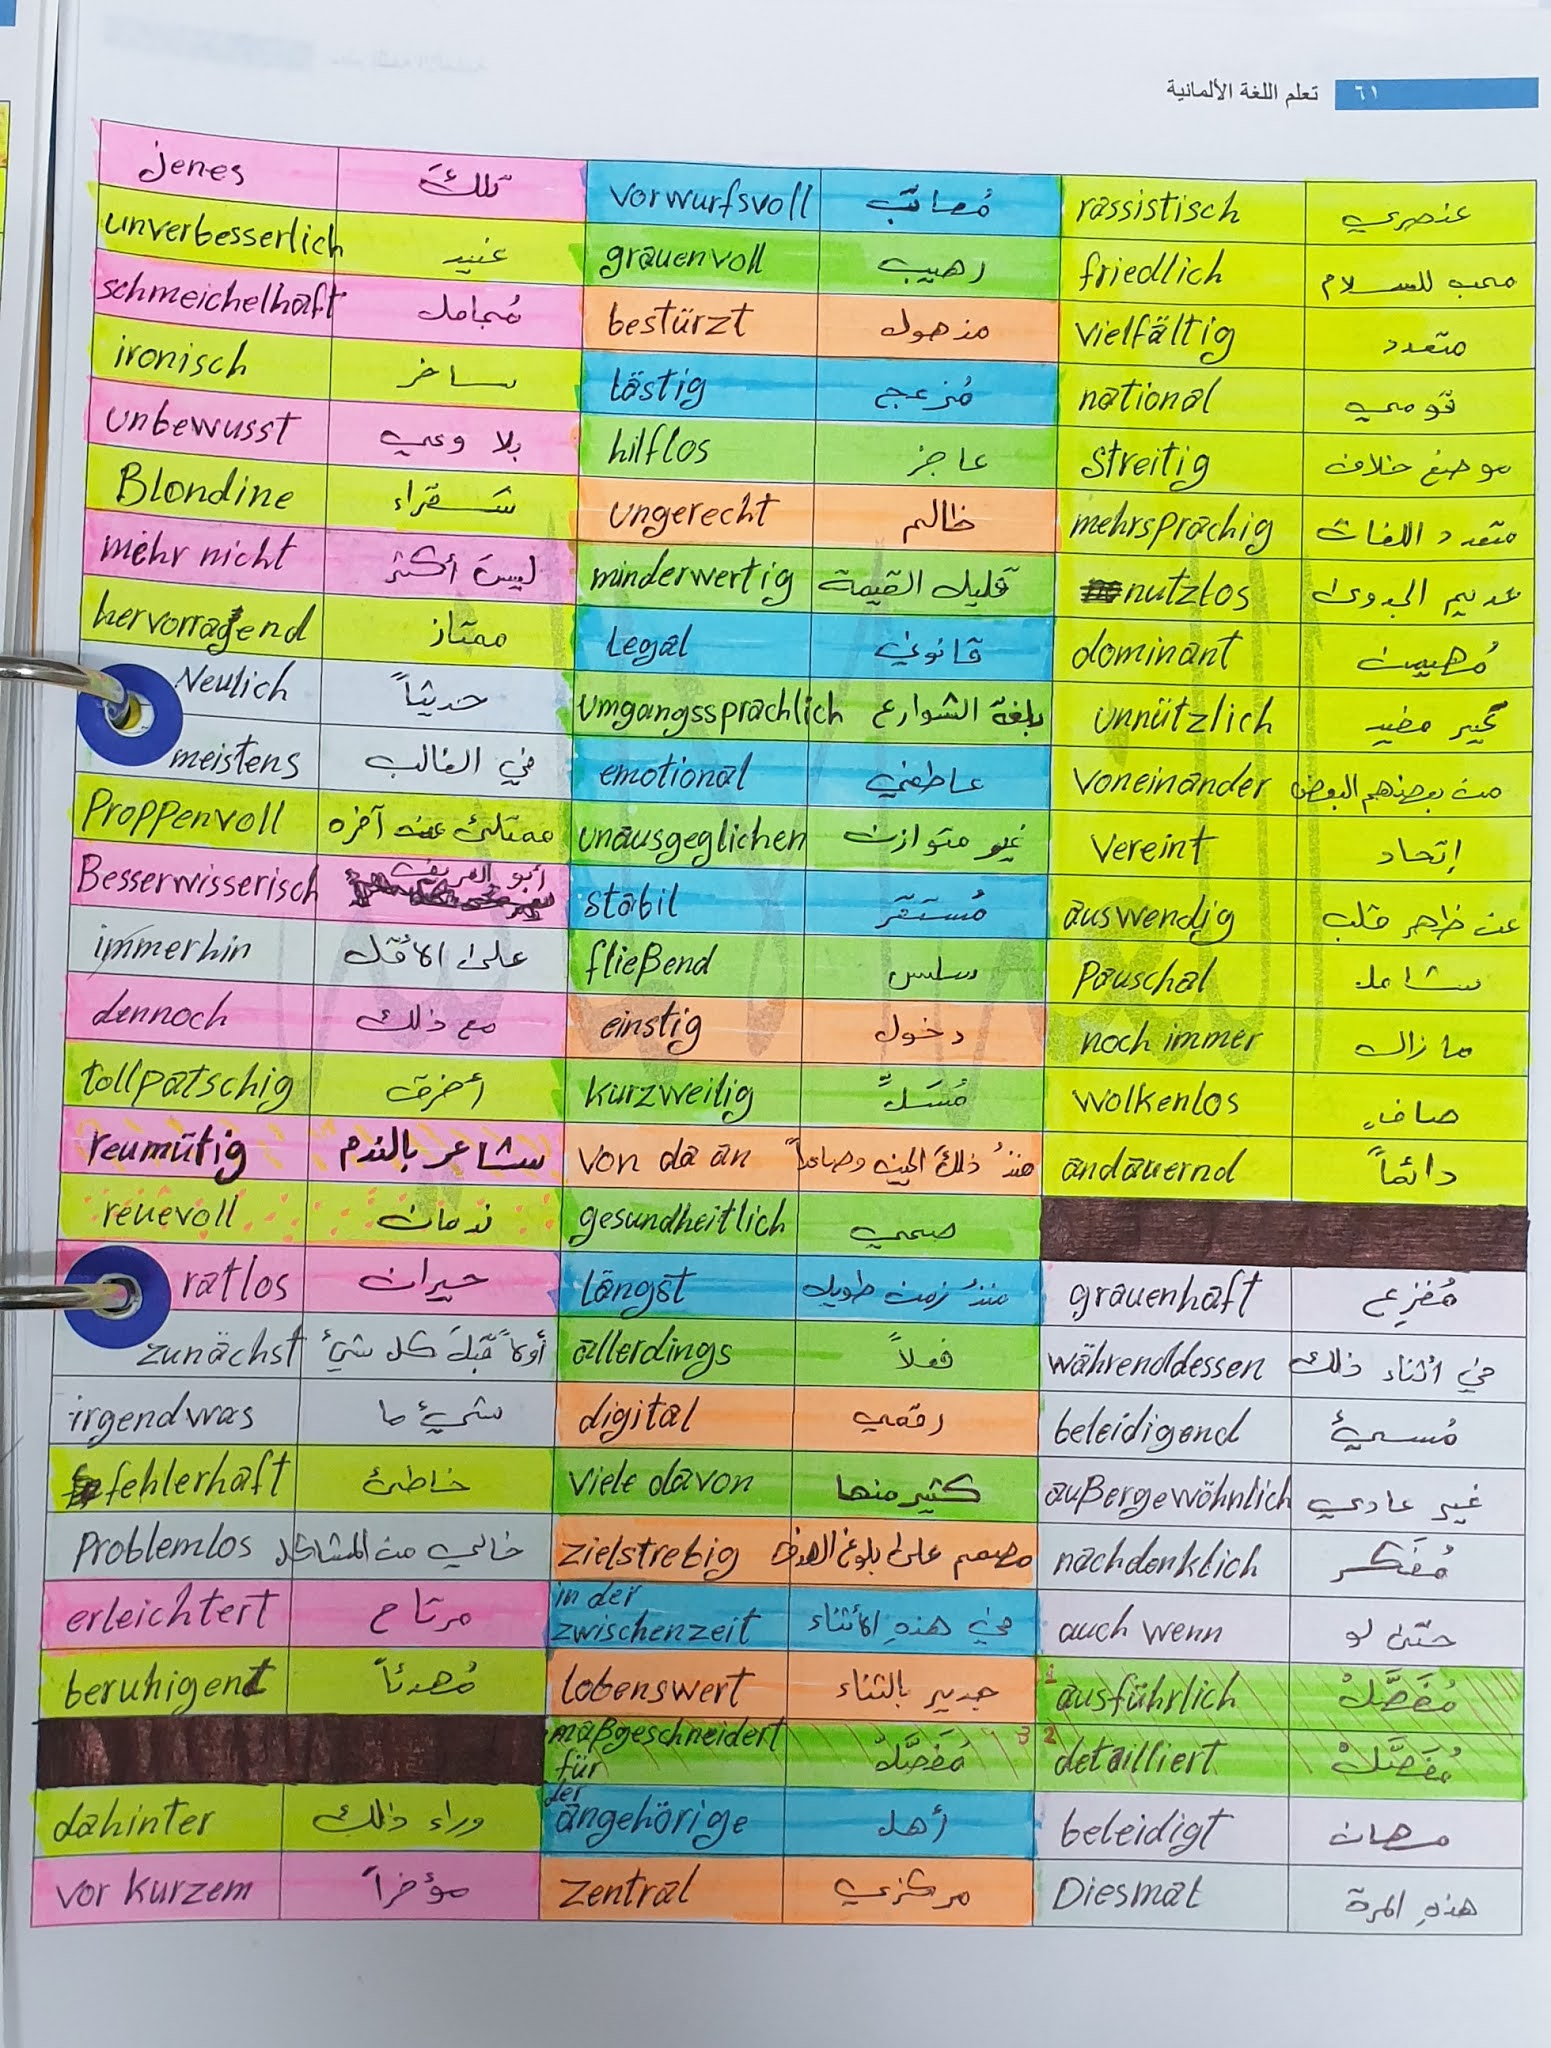 ٦١ تعلم اللغة الألمانية
jenes تلكَ
unverbesserlich عنيد
schmeichelhaft مُجامل
ironisch ساخر
unbewusst بلا وعي
Blondine شقراء
mehr nicht ليسَ أكثر
hervorragend ممتاز
Neulich حديثاً
meistens في الغالب
Proppenvoll ممتلئ عن آخره
Besserwisserisch أبو العريف
immerhin على الأقل
dennoch مع ذلك
tollpatschig أخرق
reumütig شاعر بالندم
reuevoll ندمان
ratlos حيران
zunächst أولاً قبلَ كل شيء
irgendwas شيء ما
fehlerhaft خاطئ
Problemlos خالي من المشاكل
erleichtert مرتاح
beruhigent مُهدئاً
dahinter وراء ذلك
vor kurzem مؤخراً
vorwurfsvoll مُعاتب
grauenvoll رهيب
bestürzt مذهول
lästig مُزعج
hilflos عاجز
ungerecht ظالم
minderwertig قليل القيمة
Legal قانوني
umgangssprachlich بلغة الشوارع
emotional عاطفي
unausgeglichen غير متوازن
stabil مُستَقَر
fließend سلس
einstig دخول
kurzweilig مُسَلٍّ
von da an منذُ ذلكَ الحين وصاعداً
gesundheitlich صحي
längst منذُ زمن طويل
allerdings فعلاً
digital رقمي
viele davon كثير منها
zielstrebig مصمم على بلوغ الهدف
in der
zwischenzeit في هذهِ الأثناء
lobenswert جدير بالثناء
maßgeschneidert
für مُفَصَّلْ 3
der
angehörige أهل
zentral مركزي
rassistisch عنصري
friedlich محب للسلام
vielfältig متعدد
national قومي
streitig موضع خلاف
mehrsprachig متعدد اللغات
nutzlos عديم الجدوى
dominant مُهيمن
unnützlich غير مفيد
voneinander من بعضهم البعض
Vereint إتحاد
auswendig عن ظهر قلب
Pauschal شامل
noch immer ما زال
wolkenlos صافٍ
andauernd دائماً
grauenhaft مُفزع
währenddessen في أثناء ذلك
beleidigend مُسيئ
außergewöhnlich غير عادي
nachdenklich مُفَكر
auch wenn حتى لو
1 ausführlich مُفَصَّلْ
2 detailliert مُفَصَّلْ
beleidigt مهان
Diesmal هذهِ المرة